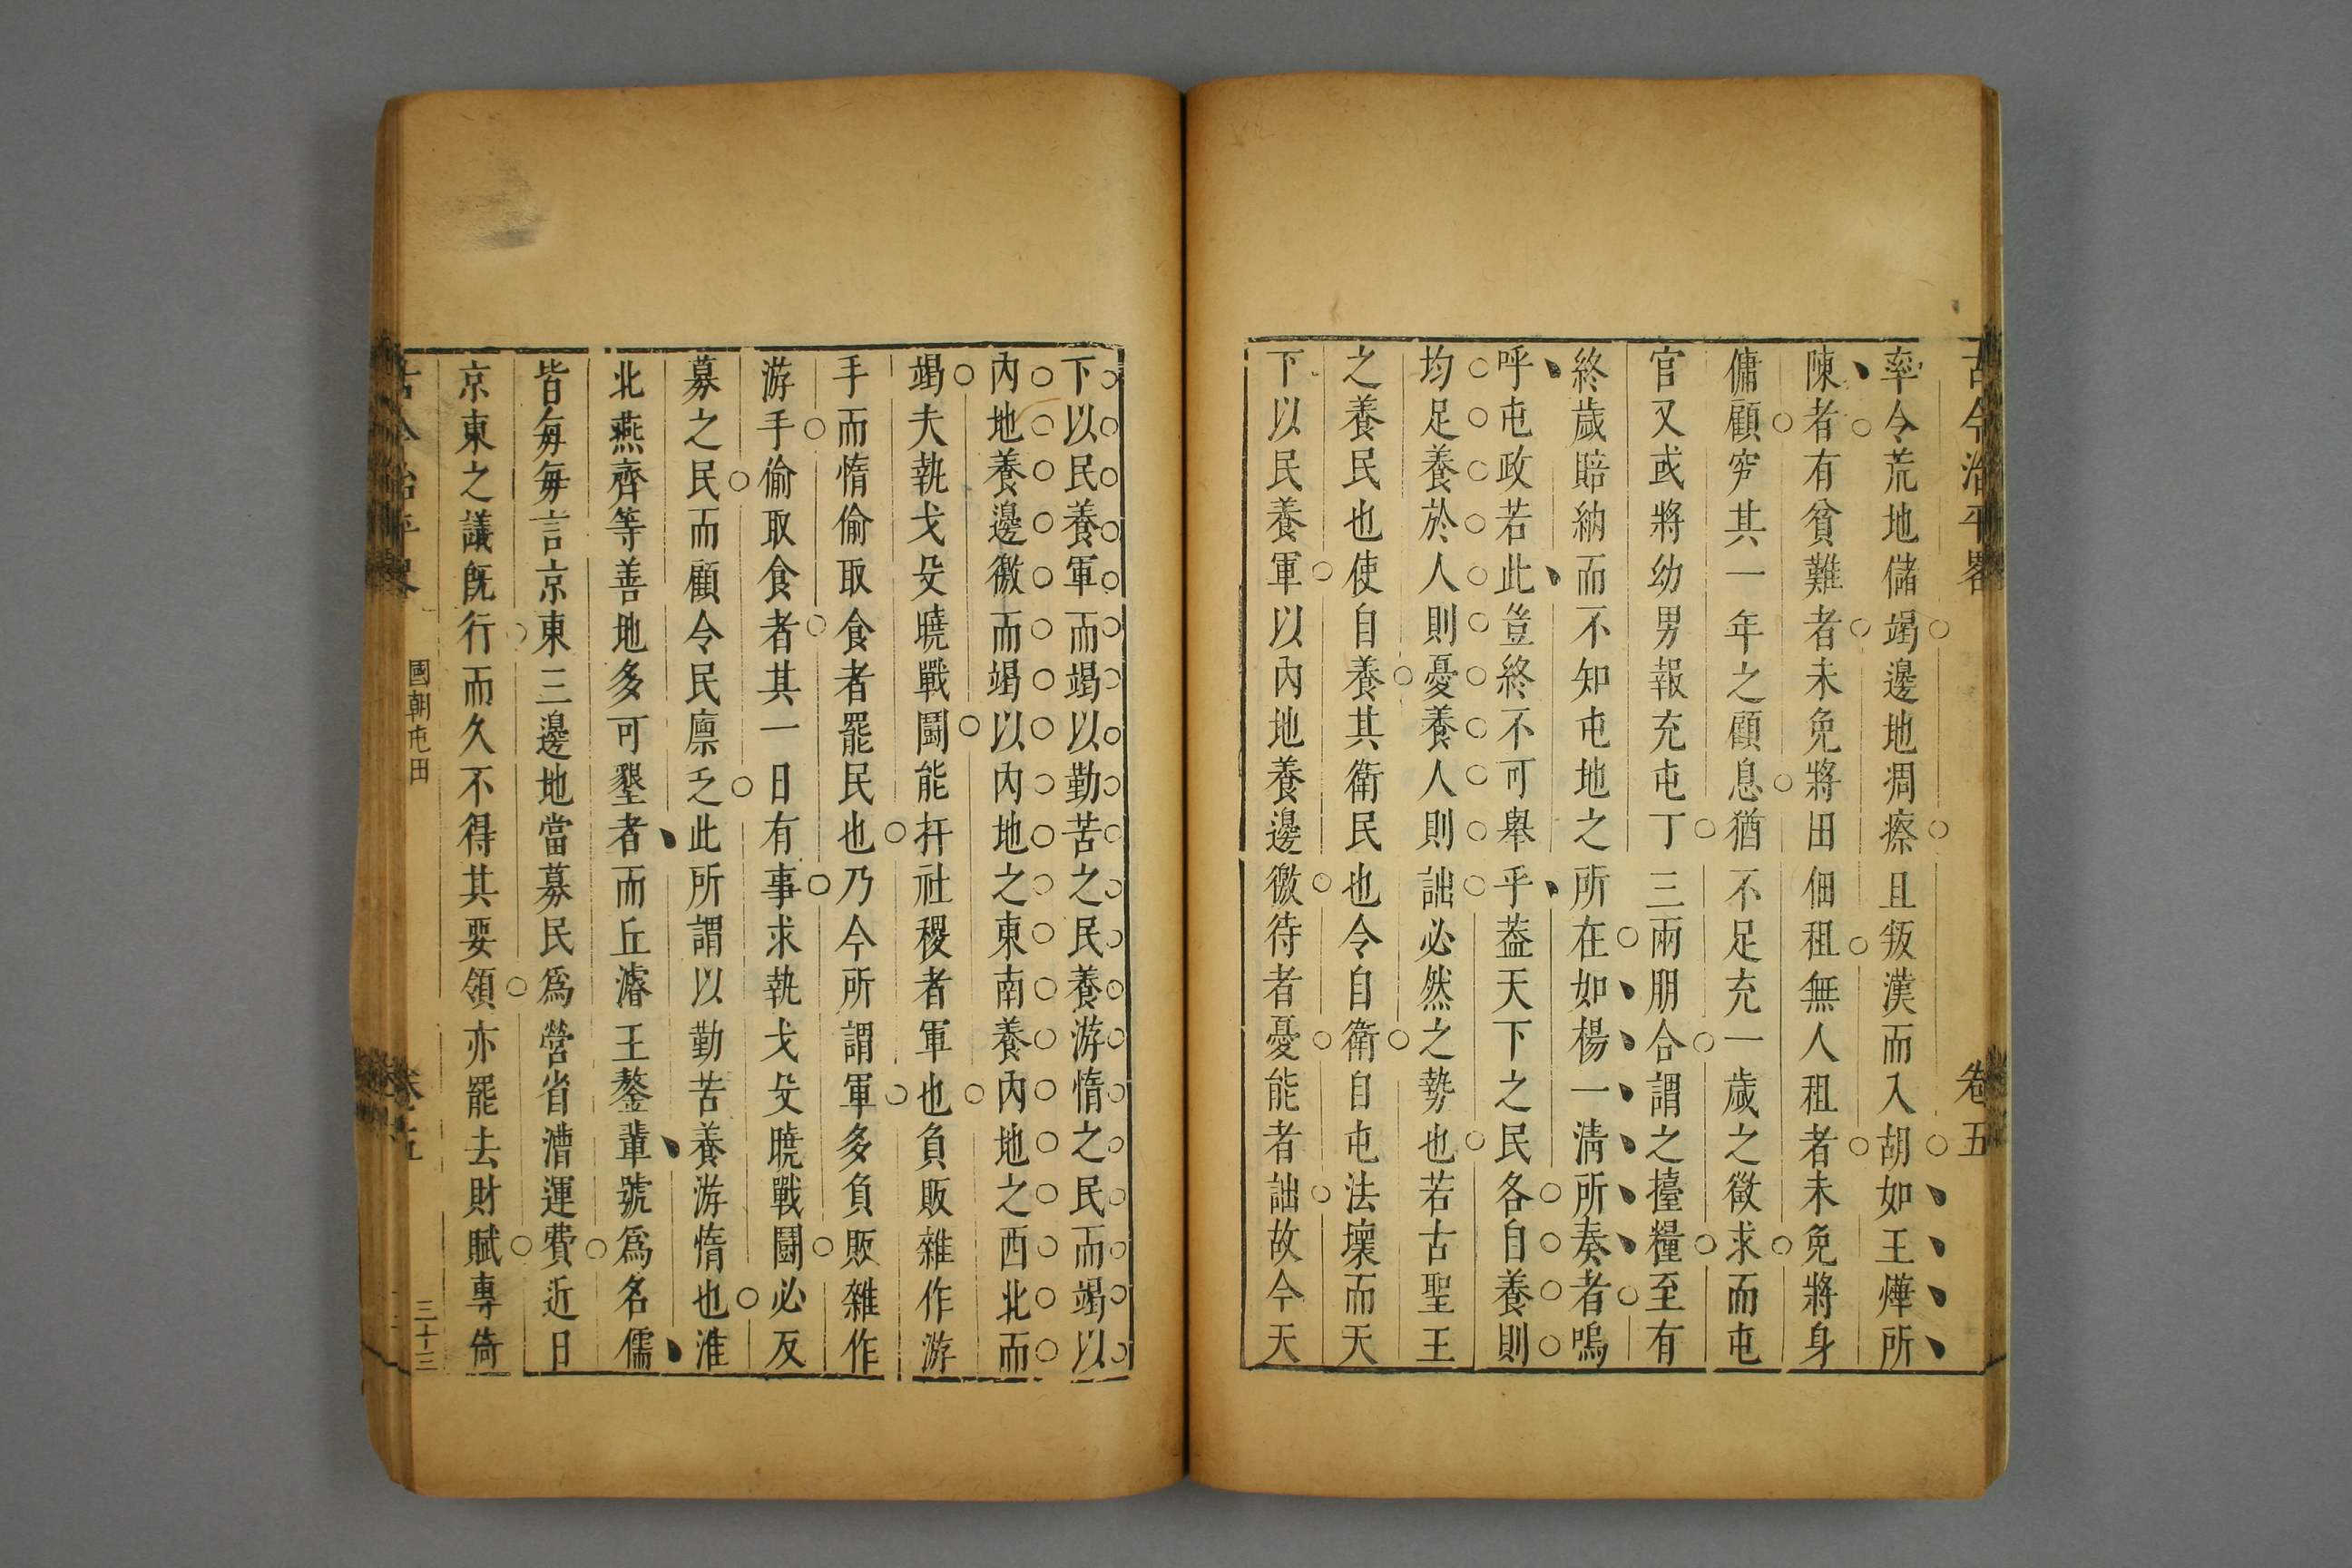 古今治平畧 卷五
率令荒地儲竭邊地凋瘵且叛漢而入胡如王燁所
陳者有貧難者未免將田佃租無人租者未免將身
傭顧穷其一年之顧息猶不足充一歲之徵求而屯
官又或將幼男報充屯丁三兩朋合謂之擡糧至有
終歲賠納而不知屯地之所在如楊一淸所奏者嗚
呼屯政若此豈終不可舉乎葢天下之民各自養則
均足養於人則憂養人則詘必然之勢也若古聖王
之養民也使自養其衛民也令自衛自屯法壞而天
下以民養軍以內地養邊徼待者憂能者詘故今天
下以民養軍而竭以勤苦之民養游惰之民而竭以
內地養邊徼而竭以內地之東南養內地之西北而
竭夫執戈殳曉戰鬪能扞社稷者軍也負販雜作游
手而惰偷取食者罷民也乃今所謂軍多負販雜作
游手偷取食者其一日有事求執戈殳曉戰鬪必反
募之民而顧令民廪乏此所謂以勤苦養游惰也淮
北燕齊等善地多可墾者而丘濬王鏊輩號爲名儒
皆每每言京東三邊地當募民爲營省漕運費近日
京東之議旣行而久不得其要領亦罷去財賦專倚
古今治平畧 國朝屯田 卷五 三十三